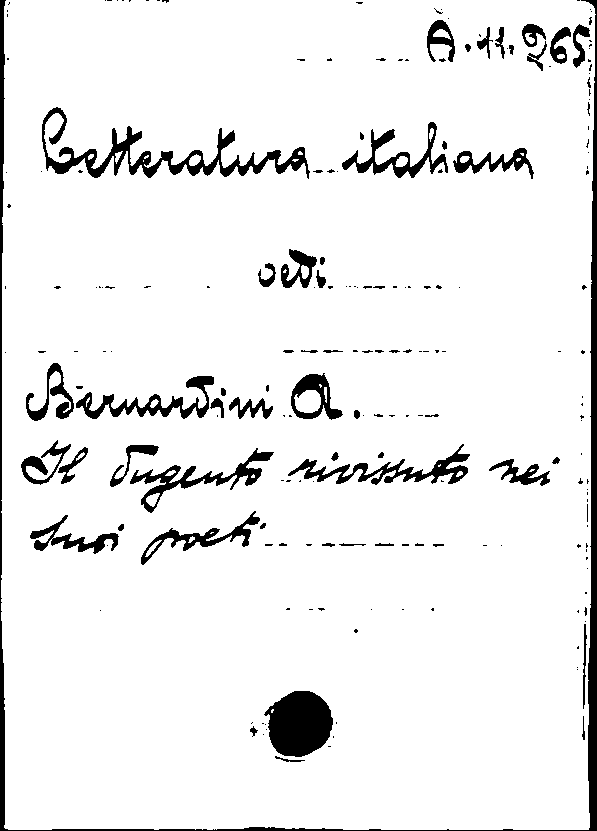 A.11.265
Letteratura italiana
vedi
Bernardini A.
Il dugento rivissuto nei
suoi poeti